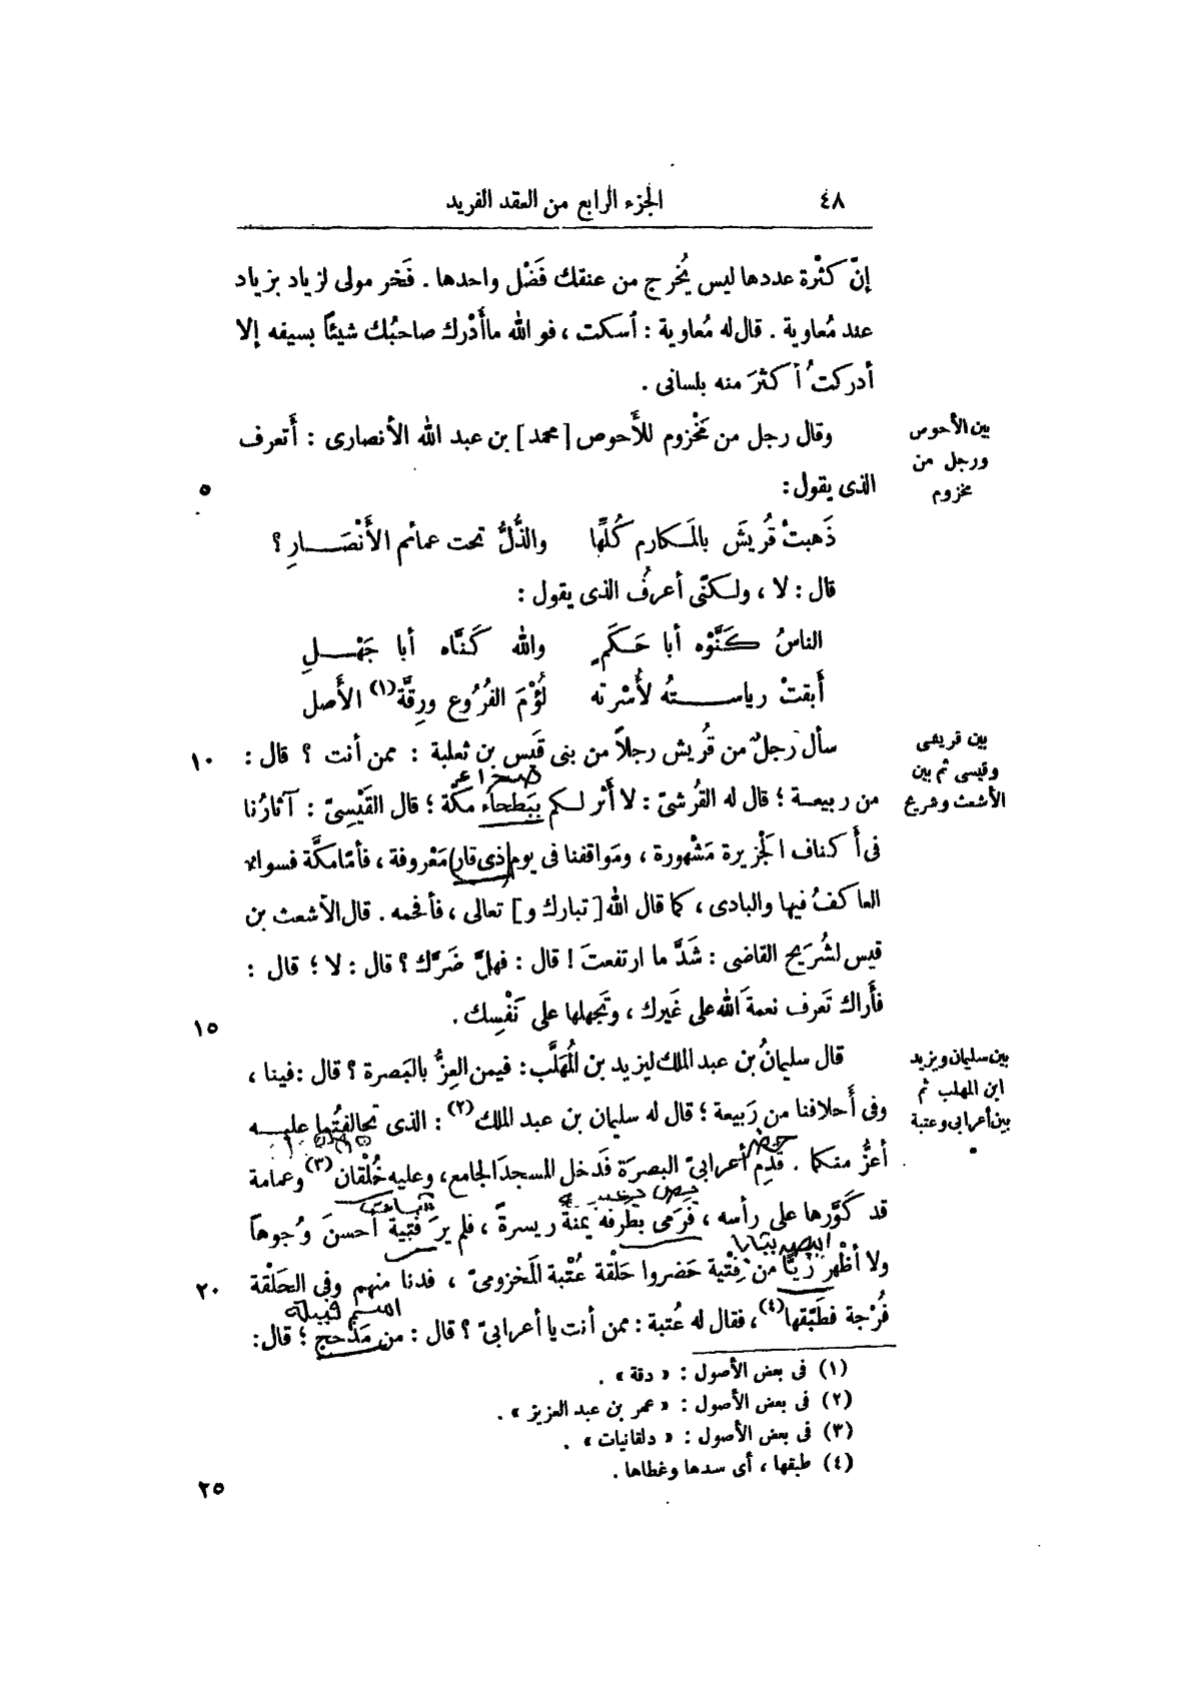 ٤٨ الجزء الرابع من العقد الفريد
إنّ كثْرة عددها ليس يُخرج من عنقك فَضْل واحدها . فَخر مولى لزياد بزياد
عند مُعاوية . قال له مُعاوية : اسكت ، فو الله ما أَدْرك صاحبُك شيئاً بسيفه إلا
أدركتُ أكثرَ منه بلسانى .
بين الأحوص
ورجل من
مخزوم
وقال رجل من مَخْزوم للأَحوص [محمد] بن عبد الله الأنصارى : أَتعرف
الذى يقول : ٥
ذَهبتْ قُريشَ بالمَـكارم كُلِّها والذُّلُّ تحت عمائم الأَنْصَـــارِ ؟
قال : لا ، ولـكنّى أعرفُ الذى يقول :
الناسُ كَنَّوْه أبا حَـكَمٍ والله كَنَّاه أبا جَهْـــلِ
أَبقتْ رياســـتُه لأُسْرته لُؤْمَ الفُرُوع ورِقَّة(١) الأَصل
بين قريشى
وقيسى ثم بين
الأشعث وشريح
سأل رَجلٌ من قُريش رجلاً من بنى قَيس بن ثعلبة : ممن أنت ؟ قال : ١٠
من ربيعـة ؛ قال له القُرشىّ : لا أَثر لـكم بِبَطحاء مكّة ؛ قال القَيْسِىّ : آثارُنا
فى أكناف الجزيرة مَشْهورة ، ومَواقفنا فى يوم ذى قار مَعْروفة ، فأمّا مكَّة فسواء
العاكفُ فيها والبادى ، كما قال الله [تبارك و] تعالى ، فأفحمه . قال الأشعث بن
قيس لشُرَيح القاضى : شَدَّ ما ارتفعتَ ! قال : فهلْ ضَرَّك ؟ قال : لا ؛ قال :
فأَراك تَعرف نعمةَ الله على غَيرك ، وتَجهلها على نَفْسِك . ١٥
بين سليمان ويزيد
ابن المهلب ثم
بين أعرابى وعتبة
قال سليمانُ بن عبد الملك ليزيد بن المُهَلَّب : فيمن العِزُّ بالبَصرة ؟ قال : فينا ،
وفى أَحلافنا من رَبيعة ؛ قال له سليمان بن عبد الملك(٢) : الذى تَحالفتُما عليـــه
أعزُّ منكما . قَدِم أعرابىّ البصرَة فَدخل المسجدَ الجامع ، وعليه خُلْقان(٣) وعمامة
قد كَوَّرها على رأسه ، فَرَمى بطَرفه يَمْنَةً ويسرةً ، فلم يرَ فتية أحسنَ وُجوهاً
ولا أظْهر زِيًّا من فِتية حَضروا حَلْقة عُتْبة المَخزومىّ ، فدنا منهم وفى الحَلْقة ٢٠
فُرْجة فطَبَّقها(٤) ، فقال له عُتبة : ممن أنت يا أعرابىّ ؟ قال : من مَذْحج ؛ قال :
اسم قبيلة
(١) فى بعض الأصول : « دقة » .
(٢) فى بعض الأصول : « عمر بن عبد العزيز » .
(٣) فى بعض الأصول : « دلقانيات » .
(٤) طبقها ، أى سدها وغطاها .
٢٥